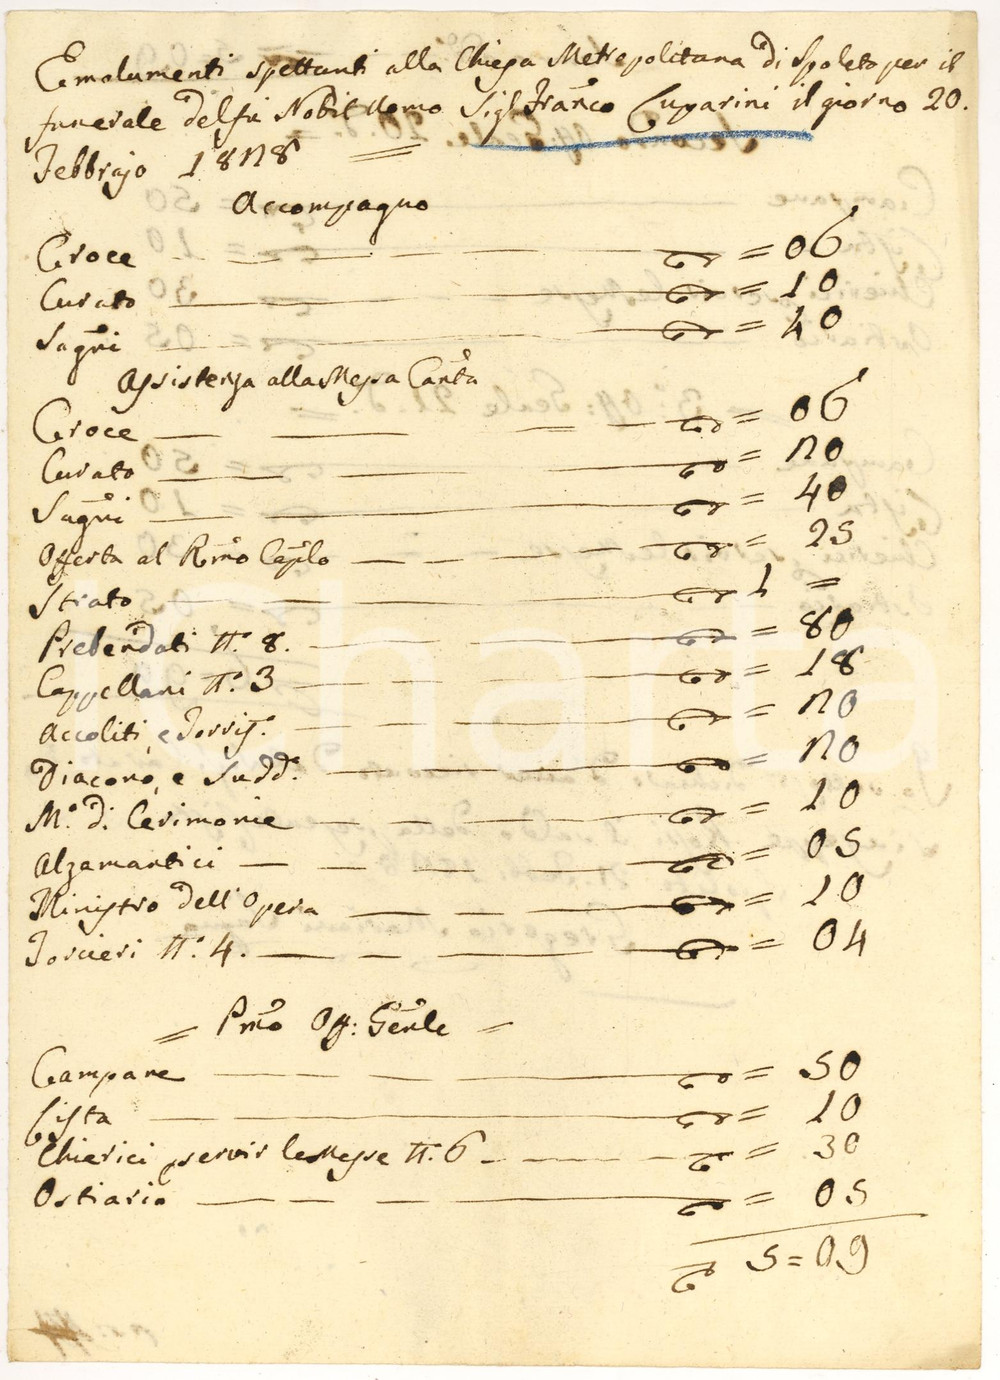 Emolumenti spettanti alla Chiesa Metropolitana di Spoleto per il
funerale del fu Nobil Uomo Sigr Franco Cuparini il giorno 20.
Febbrajo 1828 =
Accompagno
Croce = 06
Curato = 10
Sagri = 40
Assistenza alla Messa Canta
Croce = 06
Curato = 20
Sagri = 40
Offerta al Rmo Caplo = 25
Strato 1 =
Prebendati N.° 8. = 80
Cappellani N.° 3 = 18
Accoliti, e = 20
Diacono, e Sudd. = 20
M.° di Cerimonie = 10
Alzamantici = 05
Ministro dell'Opera = 10
Torcieri N.° 4. = 04
= Pmo Off: Genle =
Campane = 50
Cista = 10
Chierici p servir le Messe N. 6 = 30
Ostiario = 05
5 = 09